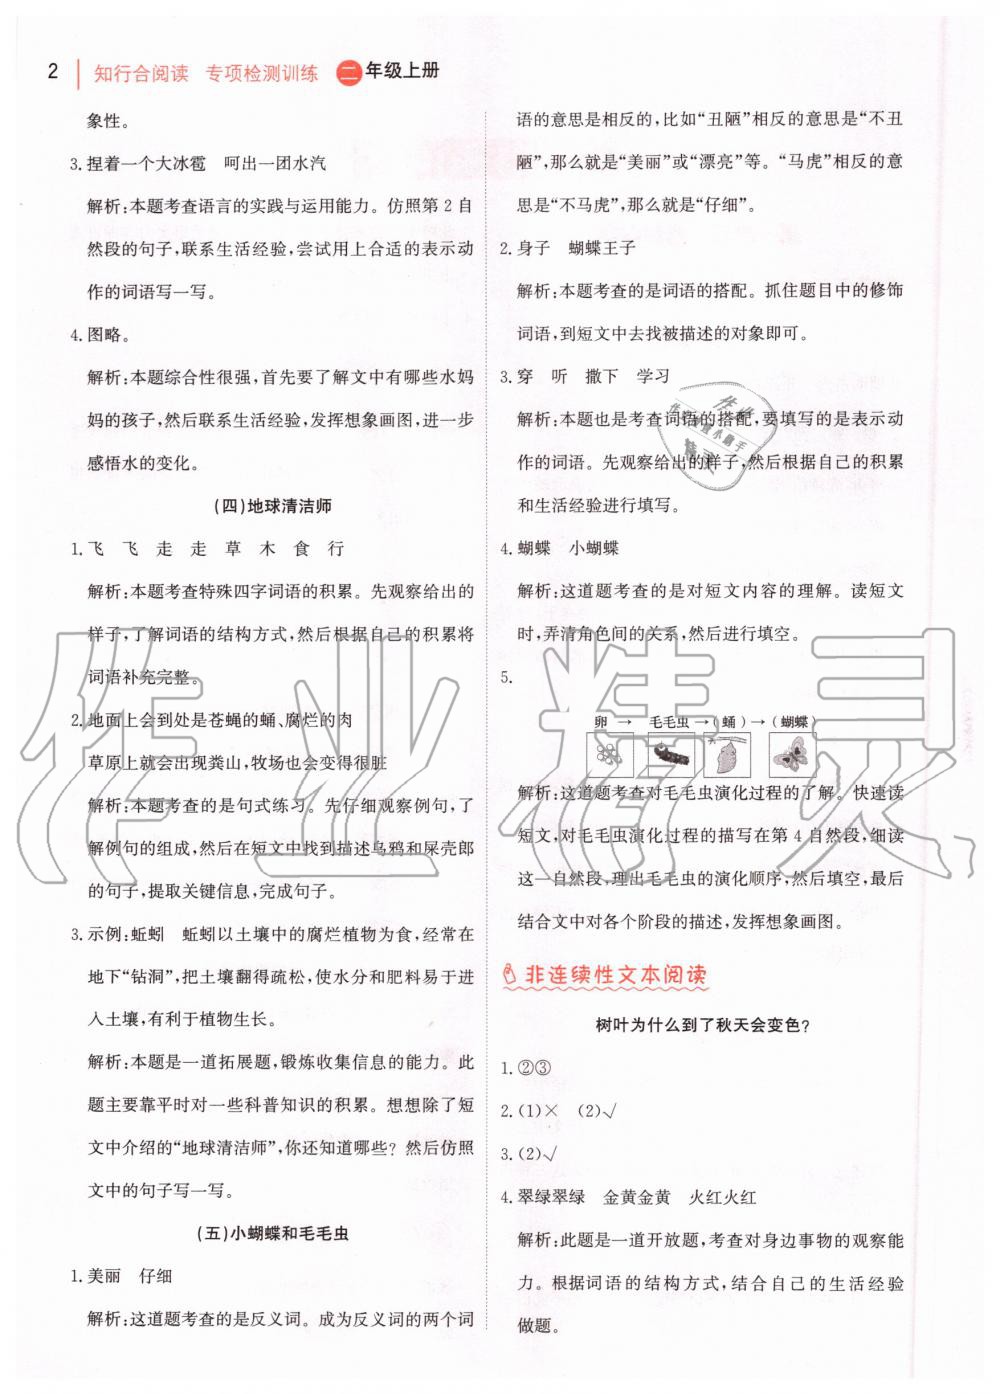 2 知行合阅读 专项检测训练 二年级上册
象性。
3.捏着一个大冰雹 呵出一团水汽
解析:本题考查语言的实践与运用能力。仿照第2自
然段的句子,联系生活经验,尝试用上合适的表示动
作的词语写一写。
4.图略。
解析:本题综合性很强,首先要了解文中有哪些水妈
妈的孩子,然后联系生活经验,发挥想象画图,进一步
感悟水的变化。
(四)地球清洁师
1.飞 飞 走 走 草 木 食 行
解析:本题考查特殊四字词语的积累。先观察给出的
样子,了解词语的结构方式,然后根据自己的积累将
词语补充完整。
2.地面上会到处是苍蝇的蛹、腐烂的肉
草原上就会出现粪山,牧场也会变得很脏
解析:本题考查的是句式练习。先仔细观察例句,了
解例句的组成,然后在短文中找到描述乌鸦和屎壳郎
的句子,提取关键信息,完成句子。
3.示例:蚯蚓 蚯蚓以土壤中的腐烂植物为食,经常在
地下“钻洞”,把土壤翻得疏松,使水分和肥料易于进
入土壤,有利于植物生长。
解析:本题是一道拓展题,锻炼收集信息的能力。此
题主要靠平时对一些科普知识的积累。想想除了短
文中介绍的“地球清洁师”,你还知道哪些?然后仿照
文中的句子写一写。
(五)小蝴蝶和毛毛虫
1.美丽 仔细
解析:这道题考查的是反义词。成为反义词的两个词
语的意思是相反的,比如“丑陋”相反的意思是“不丑
陋”,那么就是“美丽”或“漂亮”等。“马虎”相反的意
思是“不马虎”,那么就是“仔细”。
2.身子 蝴蝶王子
解析:本题考查的是词语的搭配。抓住题目中的修饰
词语,到短文中去找被描述的对象即可。
3.穿 听 撒下 学习
解析:本题也是考查词语的搭配,要填写的是表示动
作的词语。先观察给出的样子,然后根据自己的积累
和生活经验进行填写。
4.蝴蝶 小蝴蝶
解析:这道题考查的是对短文内容的理解。读短文
时,弄清角色间的关系,然后进行填空。
5.
卵 → 毛毛虫 →(蛹)→(蝴蝶)
解析:这道题考查对毛毛虫演化过程的了解。快速读
短文,对毛毛虫演化过程的描写在第4自然段,细读
这一自然段,理出毛毛虫的演化顺序,然后填空,最后
结合文中对各个阶段的描述,发挥想象画图。
非连续性文本阅读
树叶为什么到了秋天会变色?
1.②③
2.(1)× (2)√
3.(2)√
4.翠绿翠绿 金黄金黄 火红火红
解析:此题是一道开放题,考查对身边事物的观察能
力。根据词语的结构方式,结合自己的生活经验
做题。
作业精灵